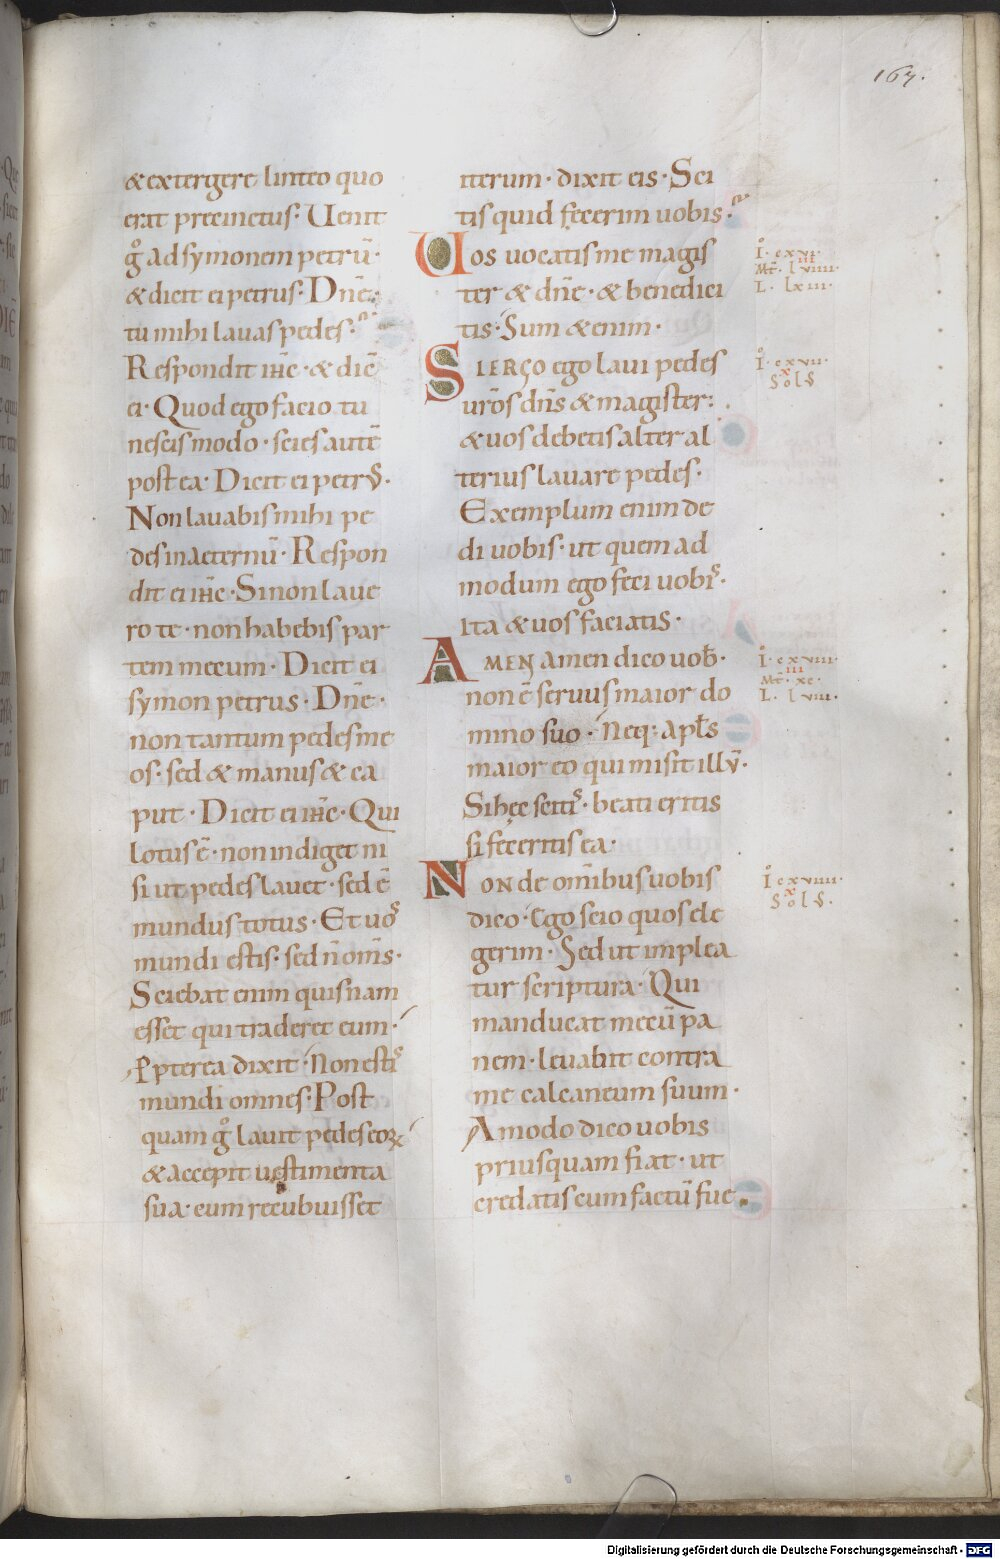 167.
& extergere linteo quo
erat precinctus· Uenit
g̊ ad symonem petrū·
& dicit ei petrus· Dn̄e·
tu mihi lauas pedes·
Respondit ih̄c · & dic̄
ei· Quod ego facio tu
nescis modo · scies autē
post ea· Dicit ei petrus·
Non lauabis mihi pe
des in aeternū· Respon
dit ei ih̄c · Si non laue
ro te · non habebis par
tem mecum · Dicit ei
symon petrus · Dn̄e ·
non tantum pedes me
os · sed & manus & ca
put · Dicit ei ih̄c · Qui
lotus ē · non indiget ni
si ut pedes lauet · sed ē
mundus totus · Et uos
mundi estis · sed n̄ om̄s·
Sciebat enim quisnam
esset qui traderet eum·
Ppterea dixit · Non estis
mundi omnes· Post
quam g̊ lauit pedes eoꝝ
& accepit uestimenta
sua· cum recubuisset
iterum · dixit eis · Sci
tis quid fecerim uobis·
Uos uocatis me magis
ter & dn̄e · & benedici
tis· Sum & enim·
SI ERGO ego laui pedes
ur̄os dn̄s & magister:
& uos debetis alter al
terius lauare pedes·
Exemplum enim de
di uobis · ut quem ad
modum ego feci uobis·
ita & uos faciatis·
AMEN amen dico uob̄·
non ē seruus maior do
mino suo · Neq: apl̄s
maior eo qui misit illū·
Si hęc scitis· beati eritis
si feceritis ea·
NON de om̄ibus uobis
dico· Ego scio quos ele
gerim · Sed ut implea
tur scriptura · Qui
manducat mecū pa
nem · leuabit contra
me calcaneum suum·
Amodo dico uobis
priusquam fiat · ut
credatis cum factū fue
I· cxvi·
Mt̄· lviiii·
L· lxiii·
I· cxvii·
x
Sol S
I· cxviii·
iii
Mt̄· xc·
L· lviii·
I cxviiii·
x
Sol S·
Digitalisierung gefördert durch die Deutsche Forschungsgemeinschaft - DFG